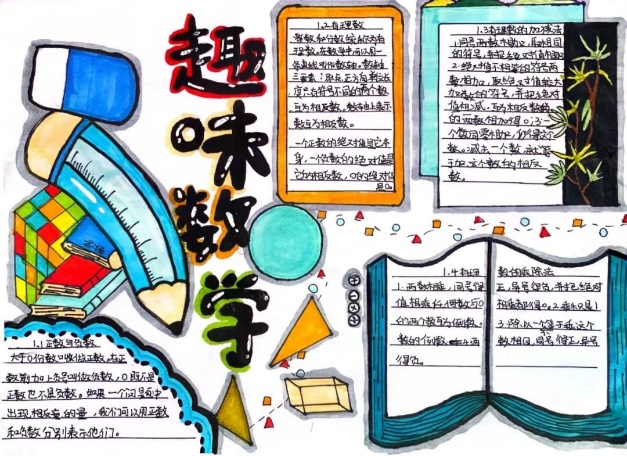 趣味数学
1.1正数与负数
大于0的数叫做正数,在正
数前加上负号叫做负数,0既不是
正数也不是负数。如果一个问题中
出现相反意的量,我们可以用正数
和负数分别表示他们。
1.2.有理数
整数和分数统称为有
理数,在数学中可以用一
条直线
三要素:原点,正方向,单位长
度只有符号不同的两个数
互为相反数,数轴上表示
数互为相反数。
一个正数的绝对值是它本
身,一个负数的绝对值是
它的相反数,0的绝对值
是0。
1.3有理数的加减法
1.同号两数相加,取相同
的符号,并把绝对值相加
2.绝对值不相等的符号两
数相加,取绝对值较大
加数的符号,并把绝对
值相减,互为相反数
的两数相加得0;3.一
个数同零相加,仍得这个
数。减去一个数,
于加这个数的相反
数。
1.4有理数的乘除法
1.两数相乘,同号得正,异号得负,并把绝对
值相乘任何数与0相乘都得0。2.乘积是1
的两个数互为倒数。3.除以一个等于乘这个
数的倒数。两数相同,同号得正,异号
得负。